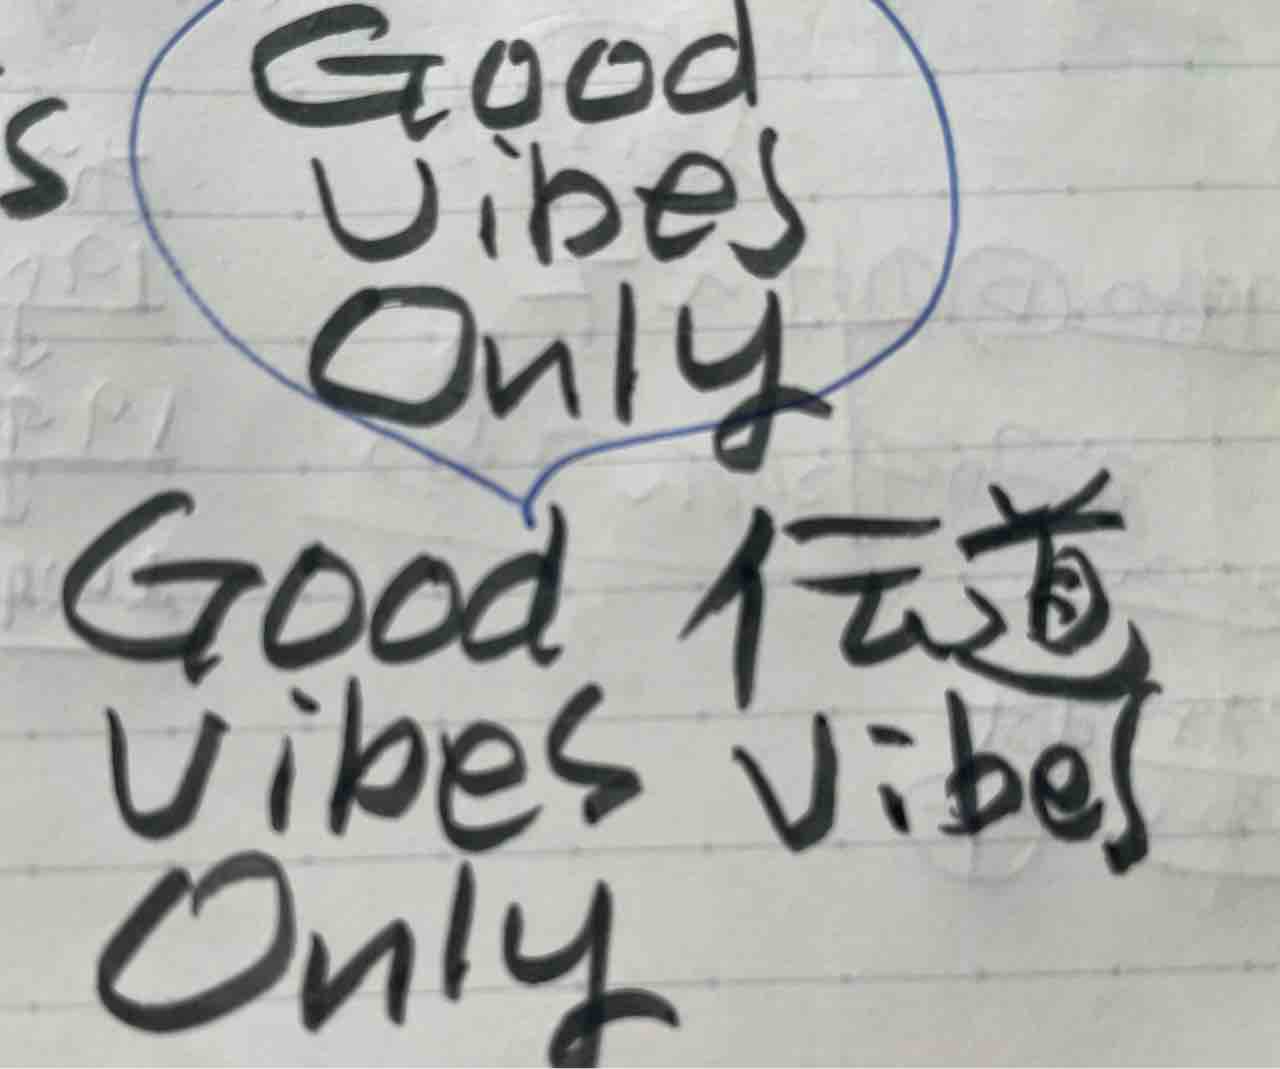 s
Good
vibes
Only
Good 伝道
vibes vibes
Only